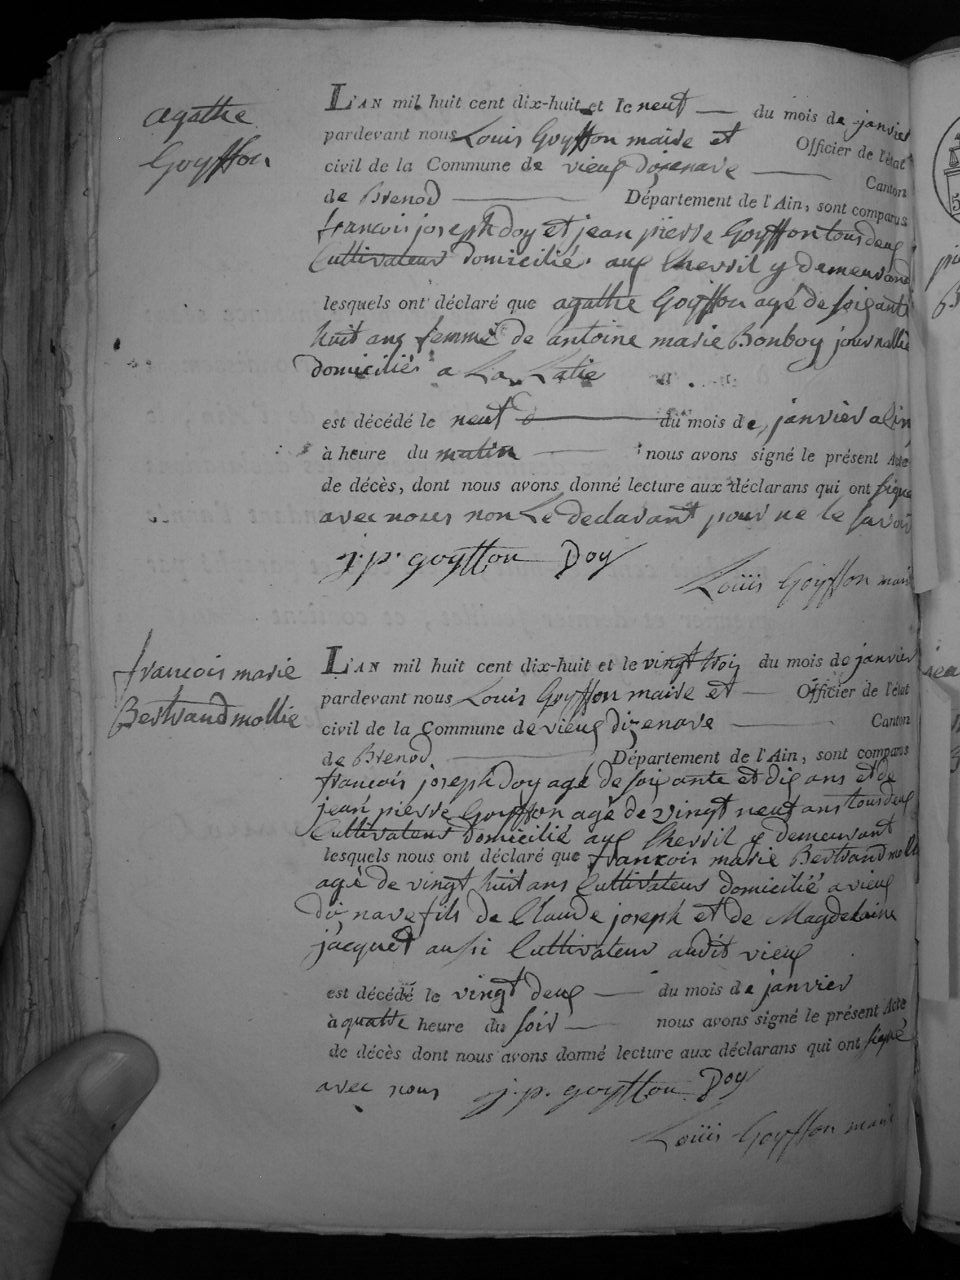 agathe
Goyffon
L'AN mil huit cent dix-huit et le neuf du mois de janvier
pardevant nous Louis Goyffon maire et Officier de l'état
civil de la Commune de vieux dizenave Canton
de Brenod Département de l'Ain, sont comparus
francois joseph Doy et jean pierre Goyffon tous deux
Cultivateurs domicilié aux Chevril y demeurand
lesquels ont déclaré que agathe Goyffon agé de soixante
huit ans femme de antoine marie Bonboy journallié
domicilié a La
est décédé le neuf du mois de janvier a
à heure du matin nous avons signé le présent Acte
de décès, dont nous avons donné lecture aux déclarans qui ont signé
avec nous non Le declarant pour ne le savoir
j. p. goyffon Doy
Louiis Goyffon maire
francois marie
Bertrand mollie
L'AN mil huit cent dix-huit et le vingt trois du mois de janvier
pardevant nous Louis Goyffon maire et Officier de l'état
civil de la Commune de vieux dizenave Canton
de Brenod Département de l'Ain, sont comparus
francois joseph Doy agé de soixante et dix ans et de
jean pierre Goyffon agé de vingt neuf ans tous deux
Cultivateurs domicilié aux Chevril y demeurant
lesquels nous ont déclaré que francois marie Bertrand mollie
agé de vingt huit ans Cultivateur domicilié a vieux
dizenave fils de Claude joseph et de Magdelaine
jacquet aussi Cultivateur audit vieux
est décédé le vingt deux du mois de janvier
à quatre heure du soir nous avons signé le présent Acte
de décès dont nous avons donné lecture aux déclarans qui ont signé
avec nous j. p. goyffon Doy
Louiis Goyffon maire